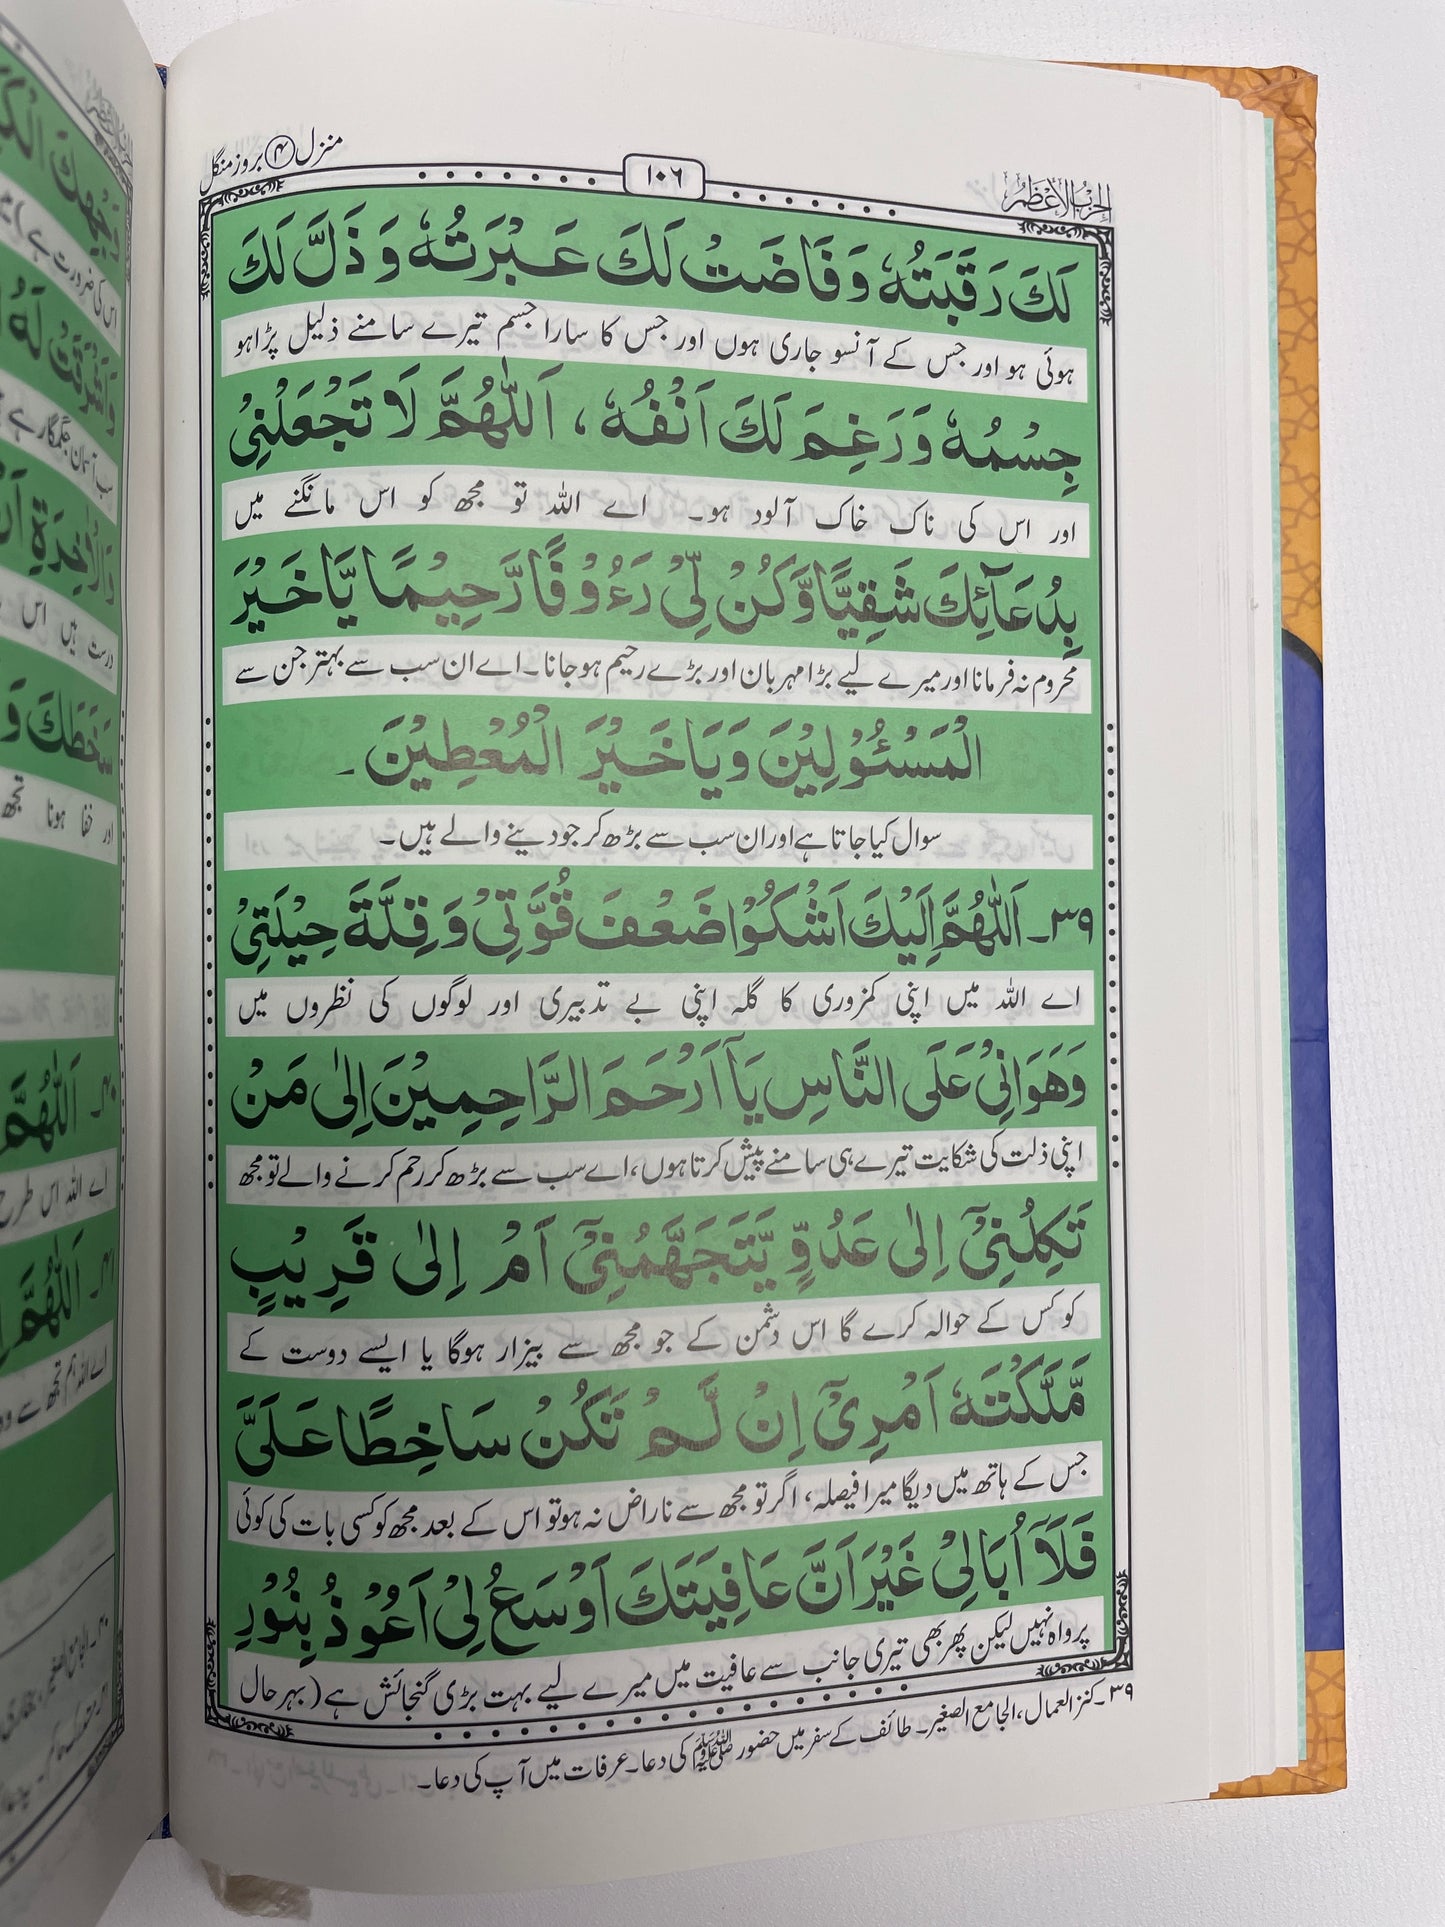 الحزب الاعظم
۱۰۶
منزل ۴ بروز منگل
لَكَ رَقَبَتُهٗ وَفَاضَتْ لَكَ عَبْرَتُهٗ وَذَلَّ لَكَ
ہوئی ہو اور جس کے آنسو جاری ہوں اور جس کا سارا جسم تیرے سامنے ذلیل پڑا ہو
جِسْمُهٗ وَرَغِمَ لَكَ اَنْفُهٗ، اَللّٰهُمَّ لَا تَجْعَلْنِيْ
اور اس کی ناک خاک آلود ہو۔ اے اللہ تو مجھ کو اس مانگنے میں
بِدُعَآئِكَ شَقِيًّا وَّكُنْ لِّيْ رَءُوْفًا رَّحِيْمًا يَّا خَيْرَ
محروم نہ فرمانا اور میرے لیے بڑا مہربان اور بڑے رحیم ہو جانا۔ اے ان سب سے بہتر جن سے
الْمَسْئُوْلِيْنَ وَيَا خَيْرَ الْمُعْطِيْنَ۔
سوال کیا جاتا ہے اور ان سب سے بڑھ کر جو دینے والے ہیں۔
۳۹۔ اَللّٰهُمَّ اِلَيْكَ اَشْكُوْا ضَعْفَ قُوَّتِيْ وَقِلَّةَ حِيْلَتِيْ
اے اللہ میں اپنی کمزوری کا گلہ اپنی بے تدبیری اور لوگوں کی نظروں میں
وَهَوَانِيْ عَلَى النَّاسِ يَآ اَرْحَمَ الرَّاحِمِيْنَ اِلٰى مَنْ
اپنی ذلت کی شکایت تیرے ہی سامنے پیش کرتا ہوں، اے سب سے بڑھ کر رحم کرنے والے تو مجھ
تَكِلُنِيْٓ اِلٰى عَدُوٍّ يَّتَجَهَّمُنِيْٓ اَمْ اِلٰى قَرِيْبٍ
کو کس کے حوالہ کرے گا اس دشمن کے جو مجھ سے بیزار ہوگا یا ایسے دوست کے
مَّلَّكْتَهٗ اَمْرِيْٓ اِنْ لَّمْ تَكُنْ سَاخِطًا عَلَيَّ
جس کے ہاتھ میں دیگا میرا فیصلہ، اگر تو مجھ سے ناراض نہ ہو تو اس کے بعد مجھ کو کسی بات کی کوئی
فَلَآ اُبَالِيْ غَيْرَ اَنَّ عَافِيَتَكَ اَوْسَعُ لِيْ اَعُوْذُ بِنُوْرِ
پرواہ نہیں لیکن پھر بھی تیری جانب سے عافیت میں میرے لیے بہت بڑی گنجائش ہے (بہرحال
۳۹۔ کنز العمال، الجامع الصغیر۔ طائف کے سفر میں حضور ﷺ کی دعا۔ عرفات میں آپ کی دعا۔